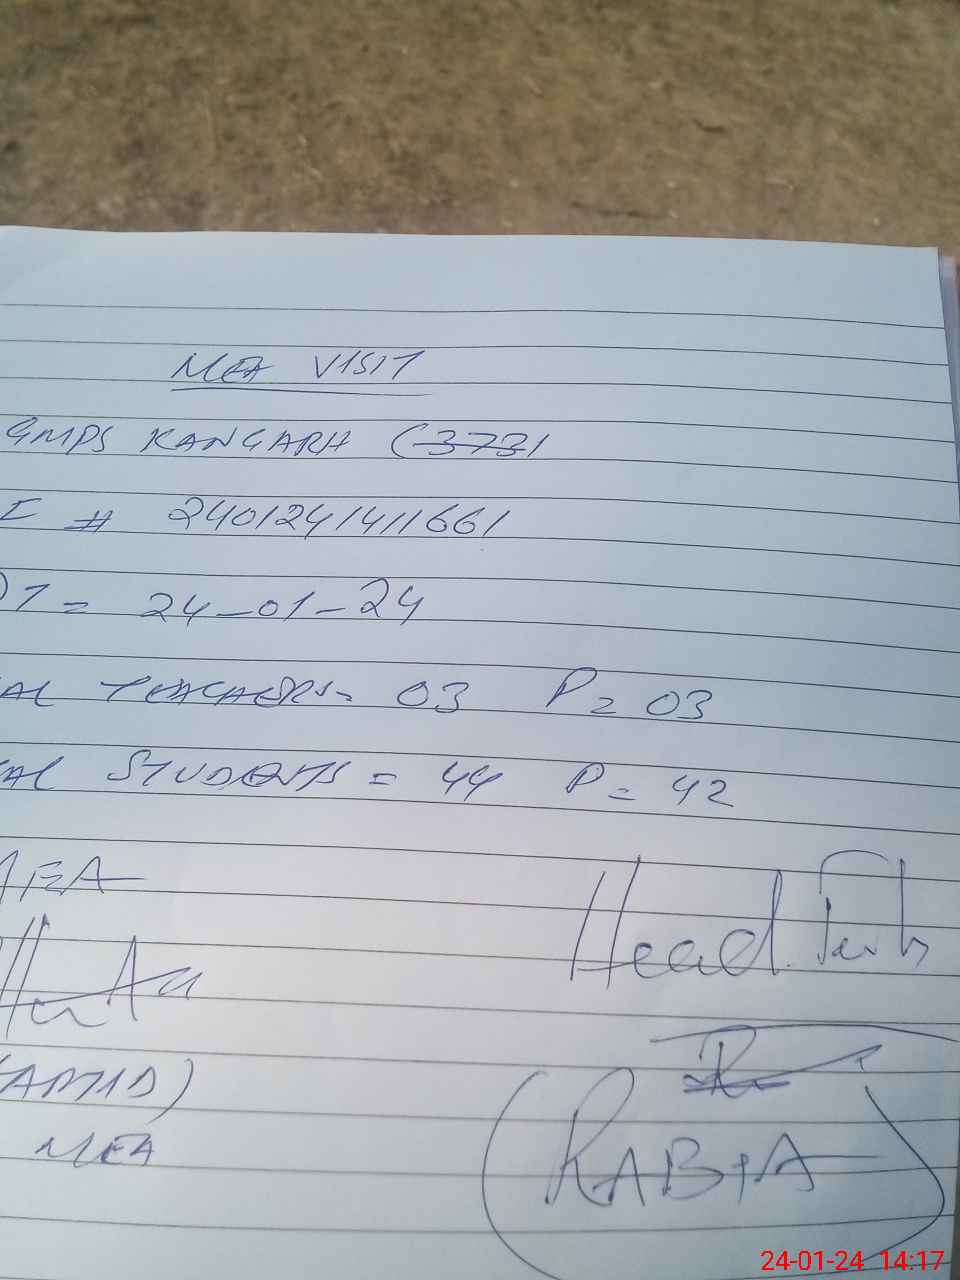 MEA VISIT
GMPS KANGARH (3731
I # 2401241411661
DT = 24-01-24
AL TEACHERS = 03 P = 03
AL STUDENTS = 44 P = 42
MEA
Head
MEA
(RABIA)
24-01-24 14:17